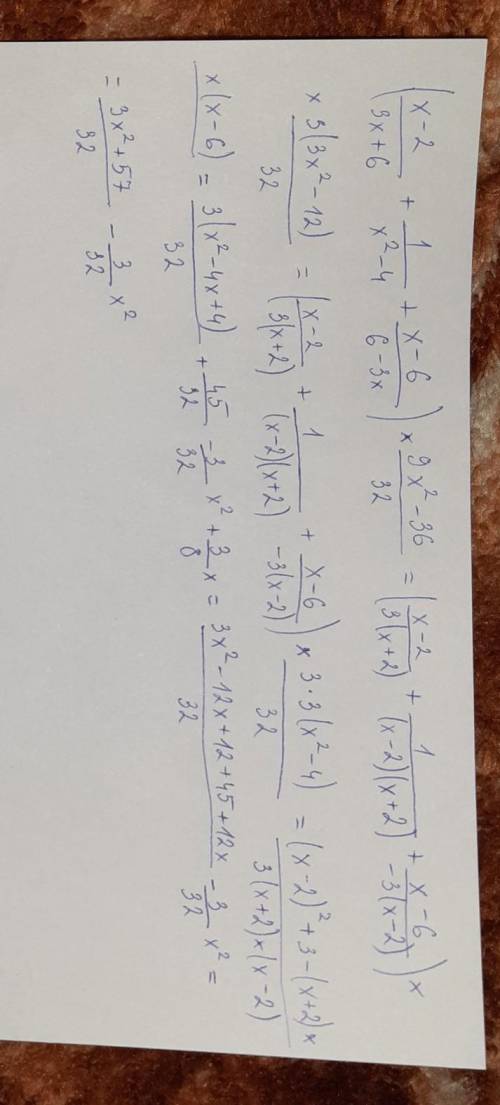 (x-2/3x+6 + 1/x²-4 + x-6/6-3x) × 9x²-36/32 = (x-2/3(x+2) + 1/(x-2)(x+2) + x-6/-3(x-2)) ×
× 3(3x²-12)/32 = (x-2/3(x+2) + 1/(x-2)(x+2) + x-6/-3(x-2)) × 3·3(x²-4)/32 = (x-2)²+3-(x+2)×/3(x+2)×(x-2)
×(x-6) = 3(x²-4x+4)/32 + 45/32 - 3/32 x² + 3/8 x = 3x²-12x+12+45+12x/32 - 3/32 x² =
= 3x²+57/32 - 3/32 x²